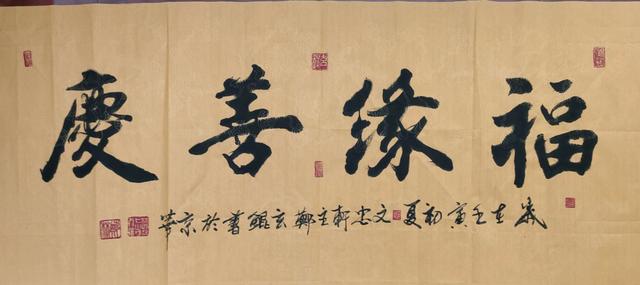 福緣善慶
歲在壬寅初夏文忠軒主鄭玄鯤書於京華